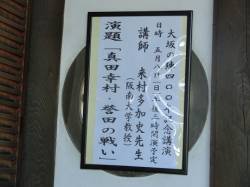 大坂の陣四〇〇年記念講演
日時 五月八日(日)午後三時開演予定
講師 来村多加史先生
(阪南大学教授)
演題「真田幸村・誉田の戦い」